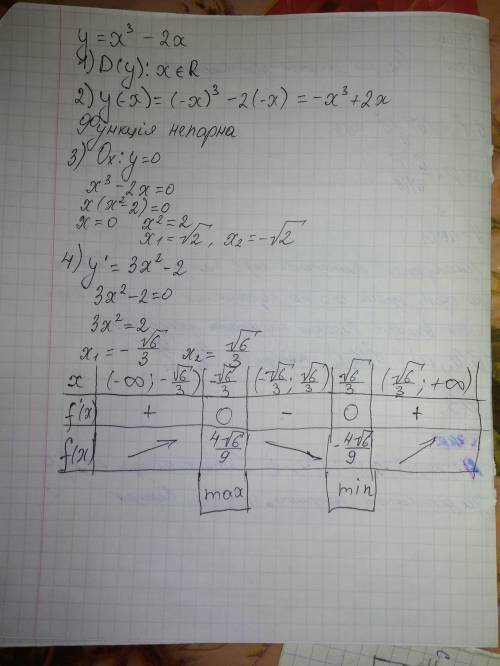 y = x³ - 2x
1) D(y): x ∈ R
2) y(-x) = (-x)³ - 2(-x) = -x³ + 2x
Функція непарна
3) Ox: y = 0
x³ - 2x = 0
x(x² - 2) = 0
x = 0 x² = 2
x₁ = √2, x₂ = -√2
4) y' = 3x² - 2
3x² - 2 = 0
3x² = 2
x₁ = -√6/3 x₂ = √6/3
x | (-∞; -√6/3) | -√6/3 | (-√6/3; √6/3) | √6/3 | (√6/3; +∞)
f'(x) | + | 0 | - | 0 | +
f(x) | ↗ | 4√6/9 | ↘ | -4√6/9 | ↗
max min